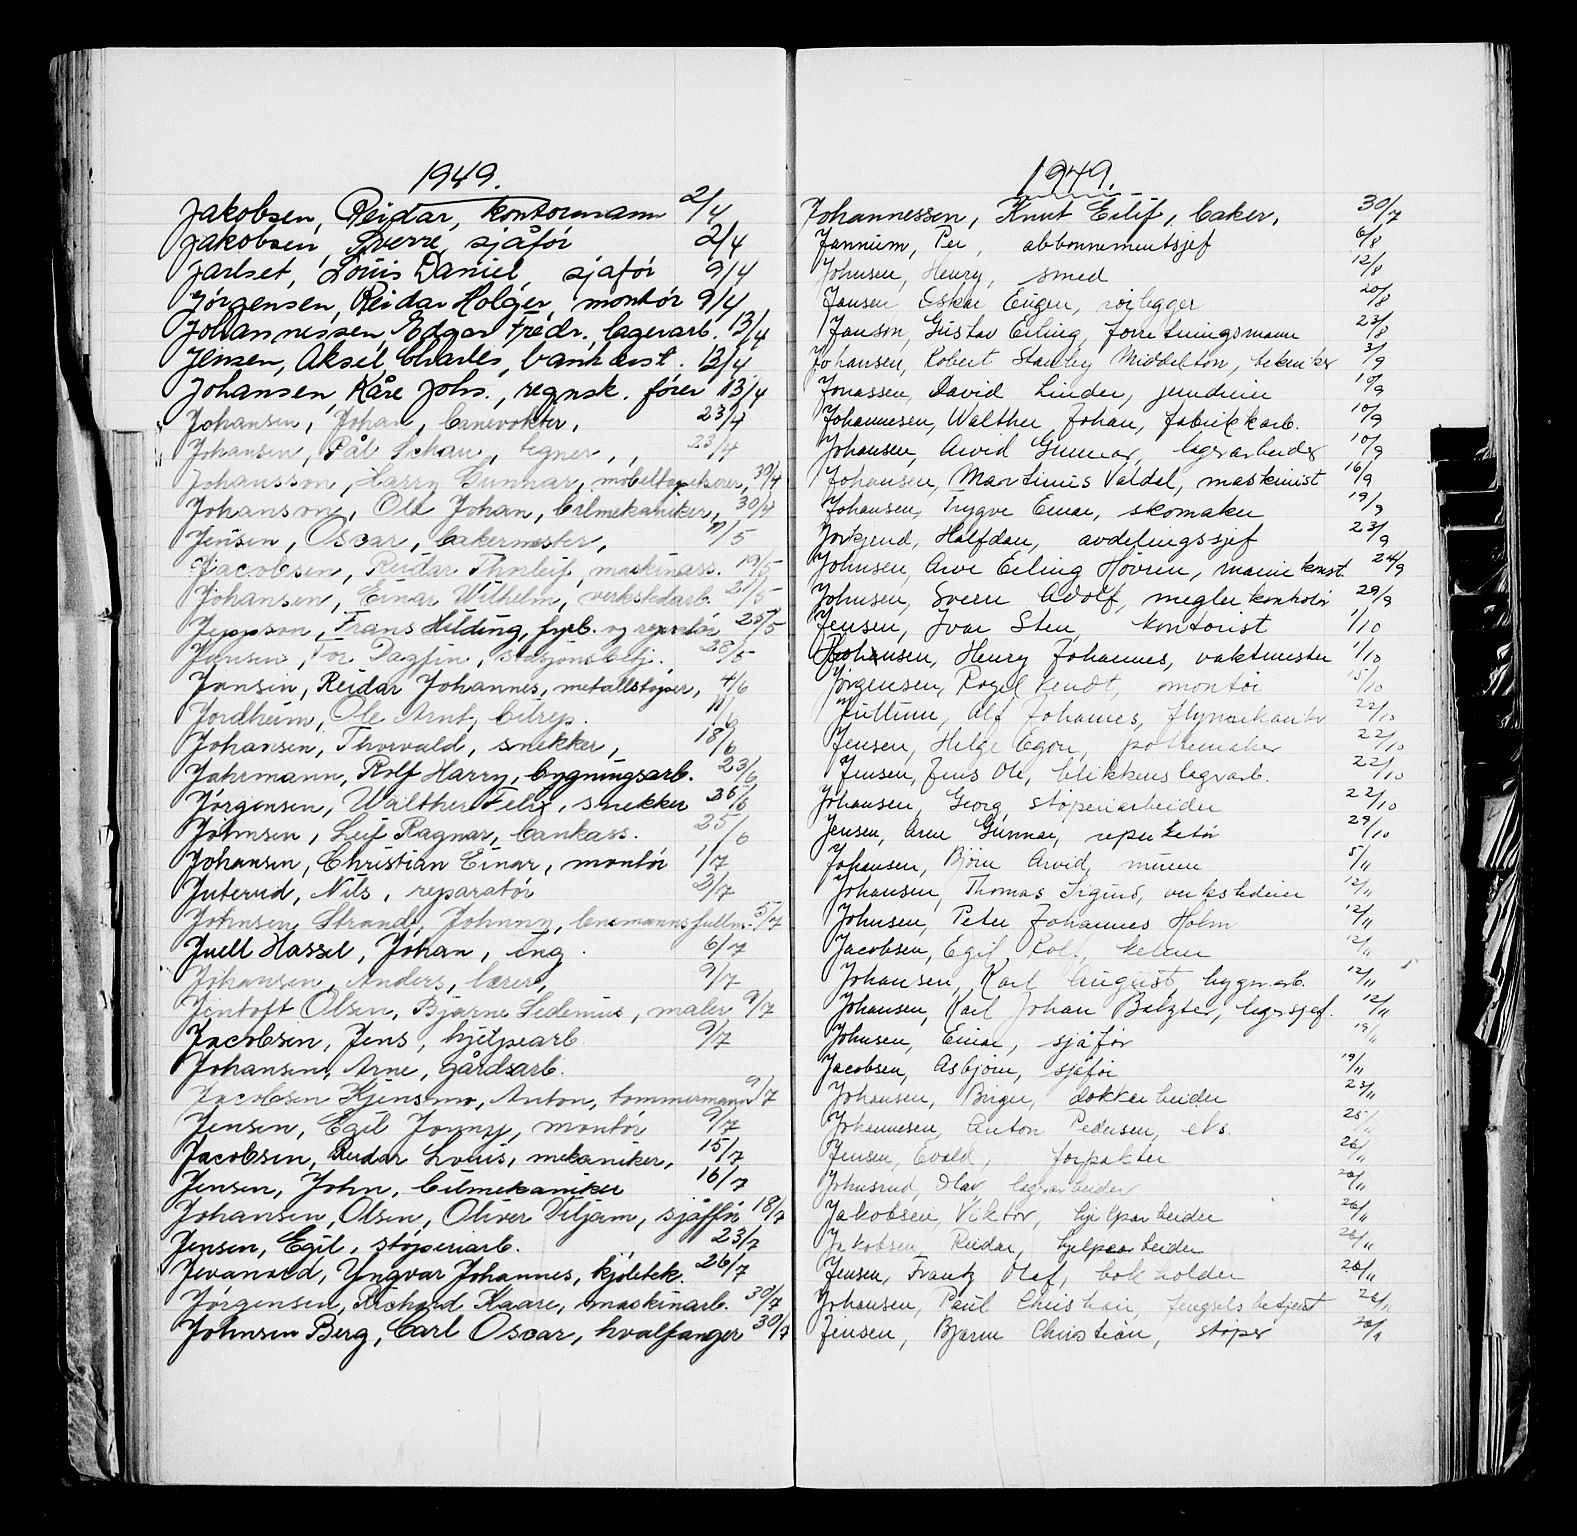 1949.
Jakobsen, Reidar, kontormann 2/4
Jakobsen, Sverre, sjåfør 2/4
Jarlset, Louis Daniel, sjåfør 9/4
Jørgensen, Reidar Holger, montør 9/4
Johannessen, Edgar Fredr., lagerarb. 13/4
Jensen, Aksel Charles, bankass. 13/4
Johansen, Kåre Johs., regnsk. fører 13/4
Johansen, Johan, banevokter, 23/4
Johansen, Pål Johan, tegner, 23/4
Johansson, Harry Gunnar, møbeltapetserer, 30/4
Johanson, Ole Johan, bilmekaniker, 30/4
Jensen, Oscar, bakermester, 7/5
Jacobsen, Reidar Thorleif, maskinass. 19/5
Johansen, Einar Wilhelm, verkstedarb. 21/5
Jeppson, Frans Hilding, fyrb. og reparatør 25/5
Jensen, Tor Dagfin, stasjonsbetj. 28/5
Jansen, Reidar Johannes, metallstøper, 4/6
Jordheim, Ole Arnt, bilrep. 11/6
Johansen, Thorvald, snekker, 18/6
Jahrmann, Rolf Harry, bygningsarb. 23/6
Jørgensen, Walther Felix, snekker 25/6
Johnsen, Leif Ragnar, bankass. 25/6
Johansen, Christian Einar, montør 1/7
Juterud, Nils, reparatør 2/7
Johnsen Strand, Johnny, lensmannsfullm. 5/7
Juell Hassel, Johan, ing. 6/7
Johansen, Anders, lærer, 9/7
Jentoft Olsen, Bjarne Ledenius, maler 9/7
Jacobsen, Jens, hjelpearb. 9/7
Johansen, Arne, gårdsarb.
Jacobsen Hjensmo, Anton, tømmermann 9/7
Jensen, Egil Jonny, montør 9/7
Jacobsen, Reidar Louis, mekaniker, 15/7
Jensen, John, bilmekaniker 16/7
Johansen, Olsen, Oliver Viljam, sjåffør 18/7
Jensen, Egil, støperiarb. 23/7
Jevanord, Yngvar Johannes, kjøletek. 26/7
Jørgensen, Richard Kaare, maskinarb. 30/7
Johnsen Berg, Carl Oscar, hvalfanger 30/7
1949.
Johannessen, Knut Eilif, baker, 30/7
Jannum, Per, abbonnementsjef 6/8
Johnsen, Henry, smed 12/8
Jansen Oskar Eugen, rørlegger 20/8
Janson, Gustav Erling, forretningsmann 23/8
Johansen, Robert Stanley Middelton, tekniker 3/9
Jonassen, David Linder, 10/9
Johannesen, Walther Johan, fabrikkarb. 10/9
Johansen, Arvid Gunnar, lagerarbeider 10/9
Johansen, Martinius Valdal, maskinist 16/9
Johansen, Trygve Einar, skomaker 19/9
Jorkjend, Halfdan, avdelingssjef 23/9
Johnsen, Arve Erling Høvren, marinekonst. 24/9
Johnsen, Sverre Adolf, megler kontorist 29/9
Jensen, Ivar Sten, kontorist 1/10
Johansen, Henry Johannes, vaktmester 1/10
Jørgensen, Rogel Kendt, montør 15/10
Jullum, Alf Johannes, flymekaniker 22/10
Jensen, Helge Egon, pottemaker 22/10
Jensen, Jens Ole, blikkenslagerarb. 22/10
Johansen, Georg, støperiarbeider 22/10
Jensen, Arne Gunnar, reparatør 29/10
Johansen, Bjørn Arvid, murer 5/11
Johansen, Thomas Sigurd, verkstedeier 12/11
Johnsen, Peter Johannes Holm 12/11
Jacobsen, Egil Rolf, kelner 12/11
Johansen, Karl August, bygn.arb. 12/11
Johansen, Karl Johan Baltzer, lagersjef. 12/11
Johnsen, Einar, sjåfør 19/11
Jacobsen, Asbjørn, sjåfør 19/11
Johansen, Birger, dokkarbeider 23/11
Johannesen, Anton Pedersen, eks. 25/11
Jensen, Evald, forpakter 26/11
Johnsrud, Olav, lagerarbeider 26/11
Jakobsen, Viktor, hjelparbeider 26/11
Jakobsen, Reidar, hjelpearbeider 26/11
Jensen, Frantz Olaf, bokholder 26/11
Johansen, Paul Christian, fengselsbetjent 26/11
Jensen, Bjarne Christian, støper 26/11